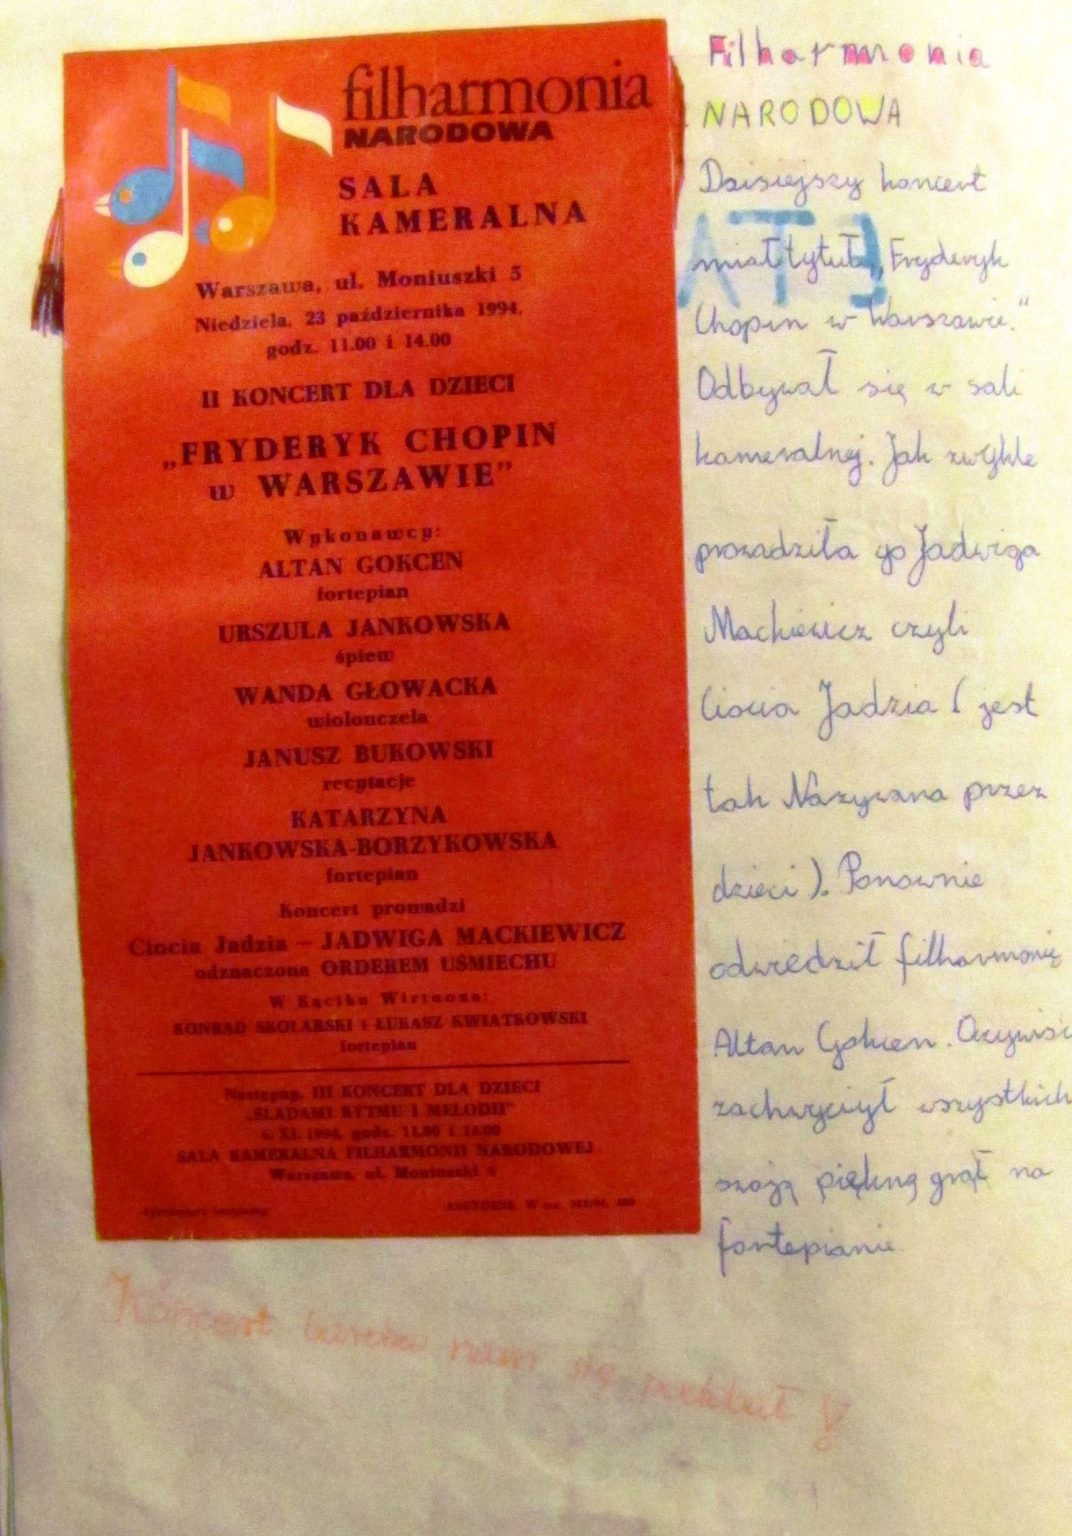 filharmonia
NARODOWA
SALA
KAMERALNA
Warszawa, ul. Moniuszki 5
Niedziela, 23 października 1994,
godz. 11.00 i 14.00
II KONCERT DLA DZIECI
„FRYDERYK CHOPIN
w WARSZAWIE”
Wykonawcy:
ALTAN GOKCEN
fortepian
URSZULA JANKOWSKA
śpiew
WANDA GŁOWACKA
wiolonczela
JANUSZ BUKOWSKI
recytacje
KATARZYNA
JANKOWSKA-BORZYKOWSKA
fortepian
Koncert prowadzi
Ciocia Jadzia – JADWIGA MACKIEWICZ
odznaczona ORDEREM UŚMIECHU
W Kąciku Wirtuoza:
KONRAD SKOLARSKI i ŁUKASZ KWIATKOWSKI
fortepian
Następny, III KONCERT DLA DZIECI
„ŚLADAMI RYTMU I MELODII”
6. XI. 1994, godz. 11.00 i 14.00
SALA KAMERALNA FILHARMONII NARODOWEJ
Warszawa, ul. Moniuszki 5
Egzemplarz bezpłatny
Filharmonia
NARODOWA
Dzisiejszy koncert
miał tytuł „Fryderyk
Chopin w Warszawie.”
Odbywał się w sali
kameralnej. Jak zwykle
prowadziła go Jadwiga
Mackiewicz czyli
Ciocia Jadzia ( jest
tak Nazywana przez
dzieci ). Ponownie
odwiedził filharmonię
Altan Gokcen.
zachwycił wszystkich
swoją piękną grął na
fortepianie
Koncert bardzo nam się podobał